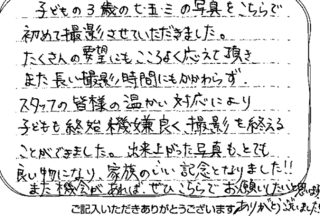 子どもの3歳の七五三の写真をこちらで
初めて撮影させていただきました。
たくさんの要望にもこころよく応えて頂き
また長い撮影時間にもかかわらず、
スタッフの皆様の温かい対応により
子どもも終始機嫌良く撮影を終える
ことができました。出来上がった写真もとても
良い物になり、家族のいい記念となりました!!
また機会があれば、ぜひこちらでお願いしたいと思います
ありがとう
ご記入いただきありがとうございます